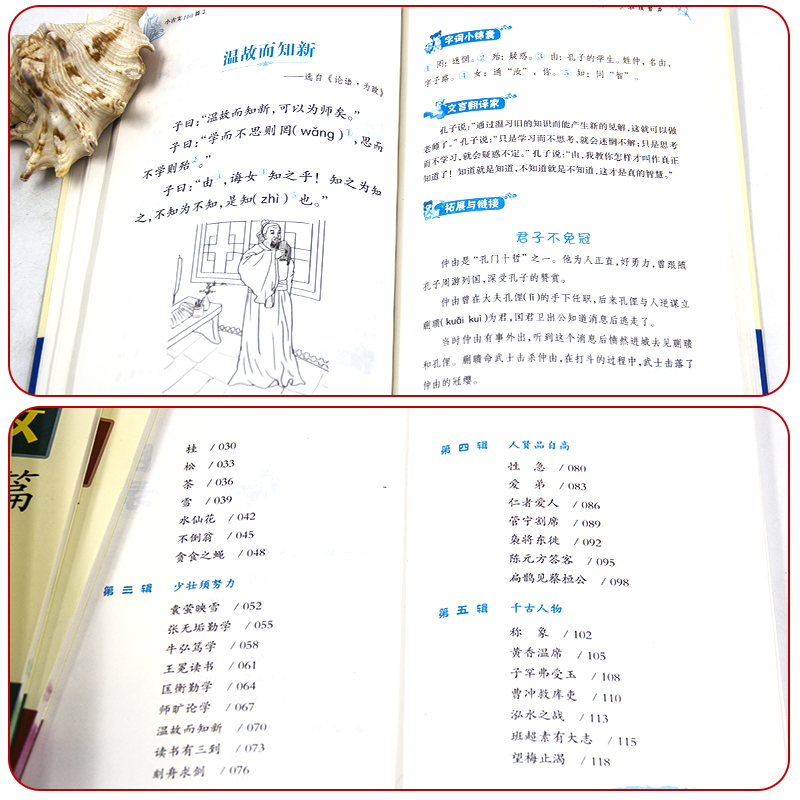 小古文100篇 2
温故而知新
——选自《论语·为政》
子曰:“温故而知新,可以为师矣。”
子曰:“学而不思则罔(wǎng)①,思而
不学则殆②。”
子曰:“由③,诲女④知之乎!知之为知
之,不知为不知,是知(zhì)⑤也。”
字词小锦囊
①罔:迷惘。②殆:疑惑。③由:孔子的学生。姓仲,名由,
字子路。④女:通“汝”,你。⑤知:同“智”。
文言翻译家
孔子说:“通过温习旧的知识而能产生新的见解,这就可以做
老师了。”孔子说:“只是学习而不思考,就会迷惘不解;只是思考
而不学习,就会疑惑不定。”孔子说:“由,我教你怎样才叫作真正
知道了!知道就是知道,不知道就是不知道,这才是真的智慧。”
拓展与链接
君子不免冠
仲由是“孔门十哲”之一。他为人正直,好勇力,曾跟随
孔子周游列国,深受孔子的赞赏。
仲由曾在大夫孔悝(lǐ)的手下任职,后来孔悝与人逆谋立
蒯聩(kuǎi kuì)为君,国君卫出公知道消息后逃走了。
当时仲由有事外出,听到这个消息后愤然进城去见蒯聩
和孔悝。蒯聩命武士击杀仲由,在打斗的过程中,武士击落了
仲由的冠缨。
篇
桂 / 030
松 / 033
茶 / 036
雪 / 039
水仙花 / 042
不倒翁 / 045
贪食之蝇 / 048
第三辑 少壮须努力
囊萤映雪 / 052
张无垢勤学 / 055
牛弘笃学 / 058
王冕读书 / 061
匡衡勤学 / 064
师旷论学 / 067
温故而知新 / 070
读书有三到 / 073
刻舟求剑 / 076
第四辑 人贤品自高
性急 / 080
爱弟 / 083
仁者爱人 / 086
管宁割席 / 089
枭将东徙 / 092
陈元方答客 / 095
扁鹊见蔡桓公 / 098
第五辑 千古人物
称象 / 102
黄香温席 / 105
子罕弗受玉 / 108
曹冲救库吏 / 110
泓水之战 / 113
班超素有大志 / 115
望梅止渴 / 118